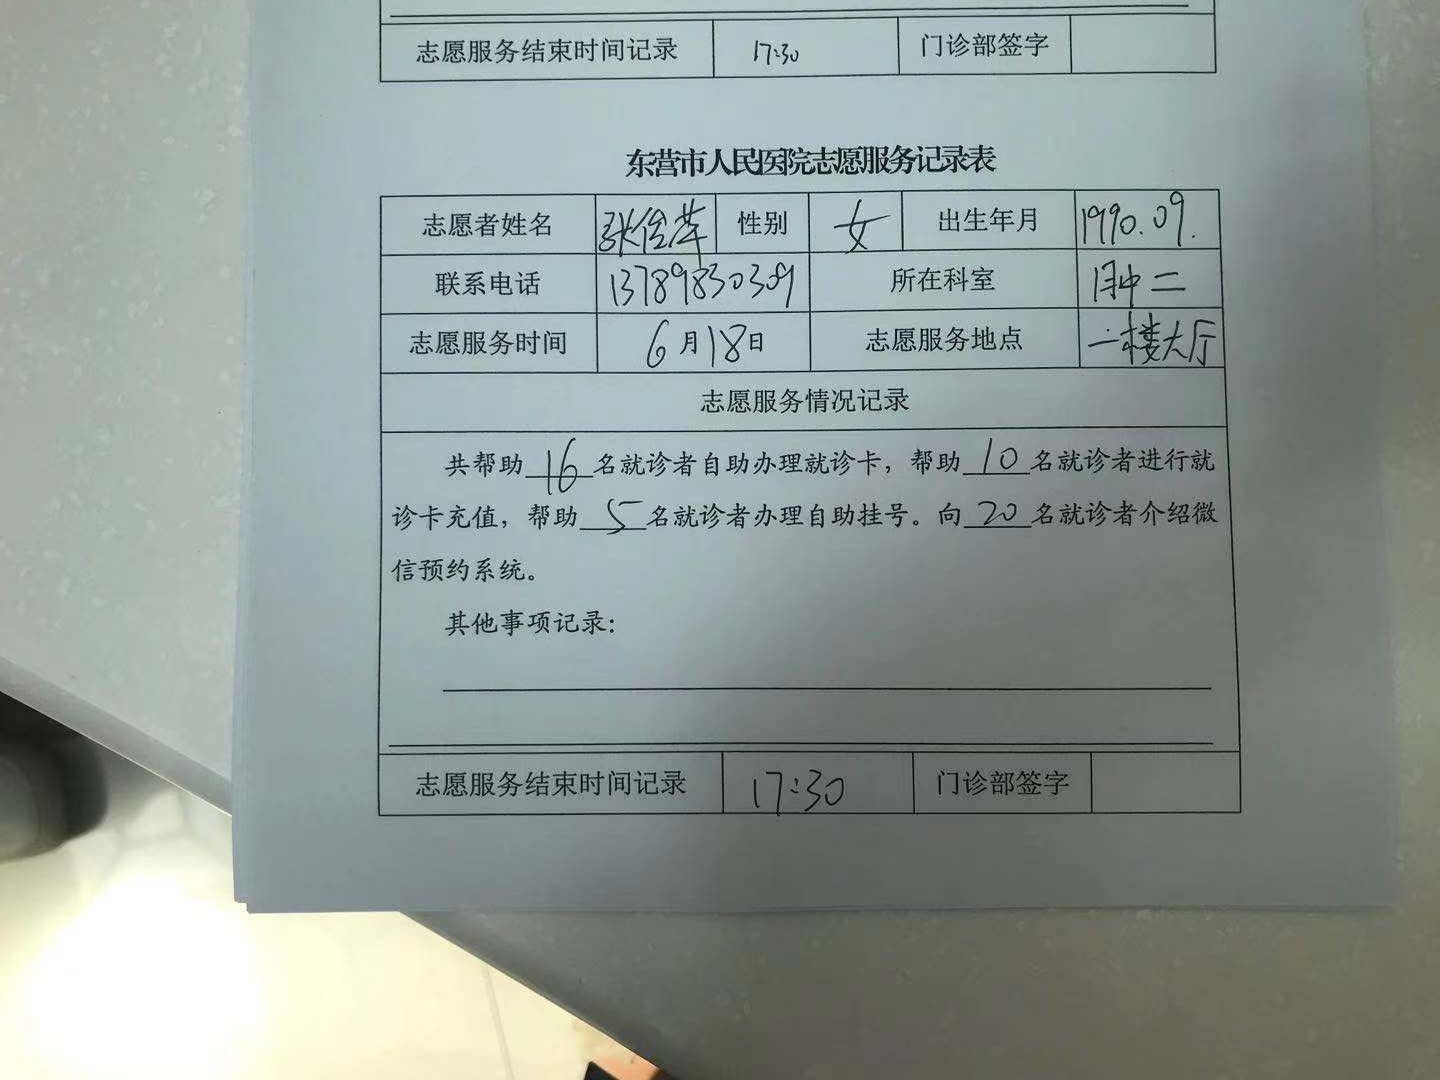 志愿服务结束时间记录 17:30 门诊部签字
东营市人民医院志愿服务记录表
志愿者姓名 张 性别 女 出生年月 1990.09.
联系电话 13789830309 所在科室 肿二
志愿服务时间 6月18日 志愿服务地点 一楼大厅
志愿服务情况记录
共帮助16名就诊者自助办理就诊卡，帮助10名就诊者进行就
诊卡充值，帮助5名就诊者办理自助挂号。向20名就诊者介绍微
信预约系统。
其他事项记录：
志愿服务结束时间记录 17:30 门诊部签字